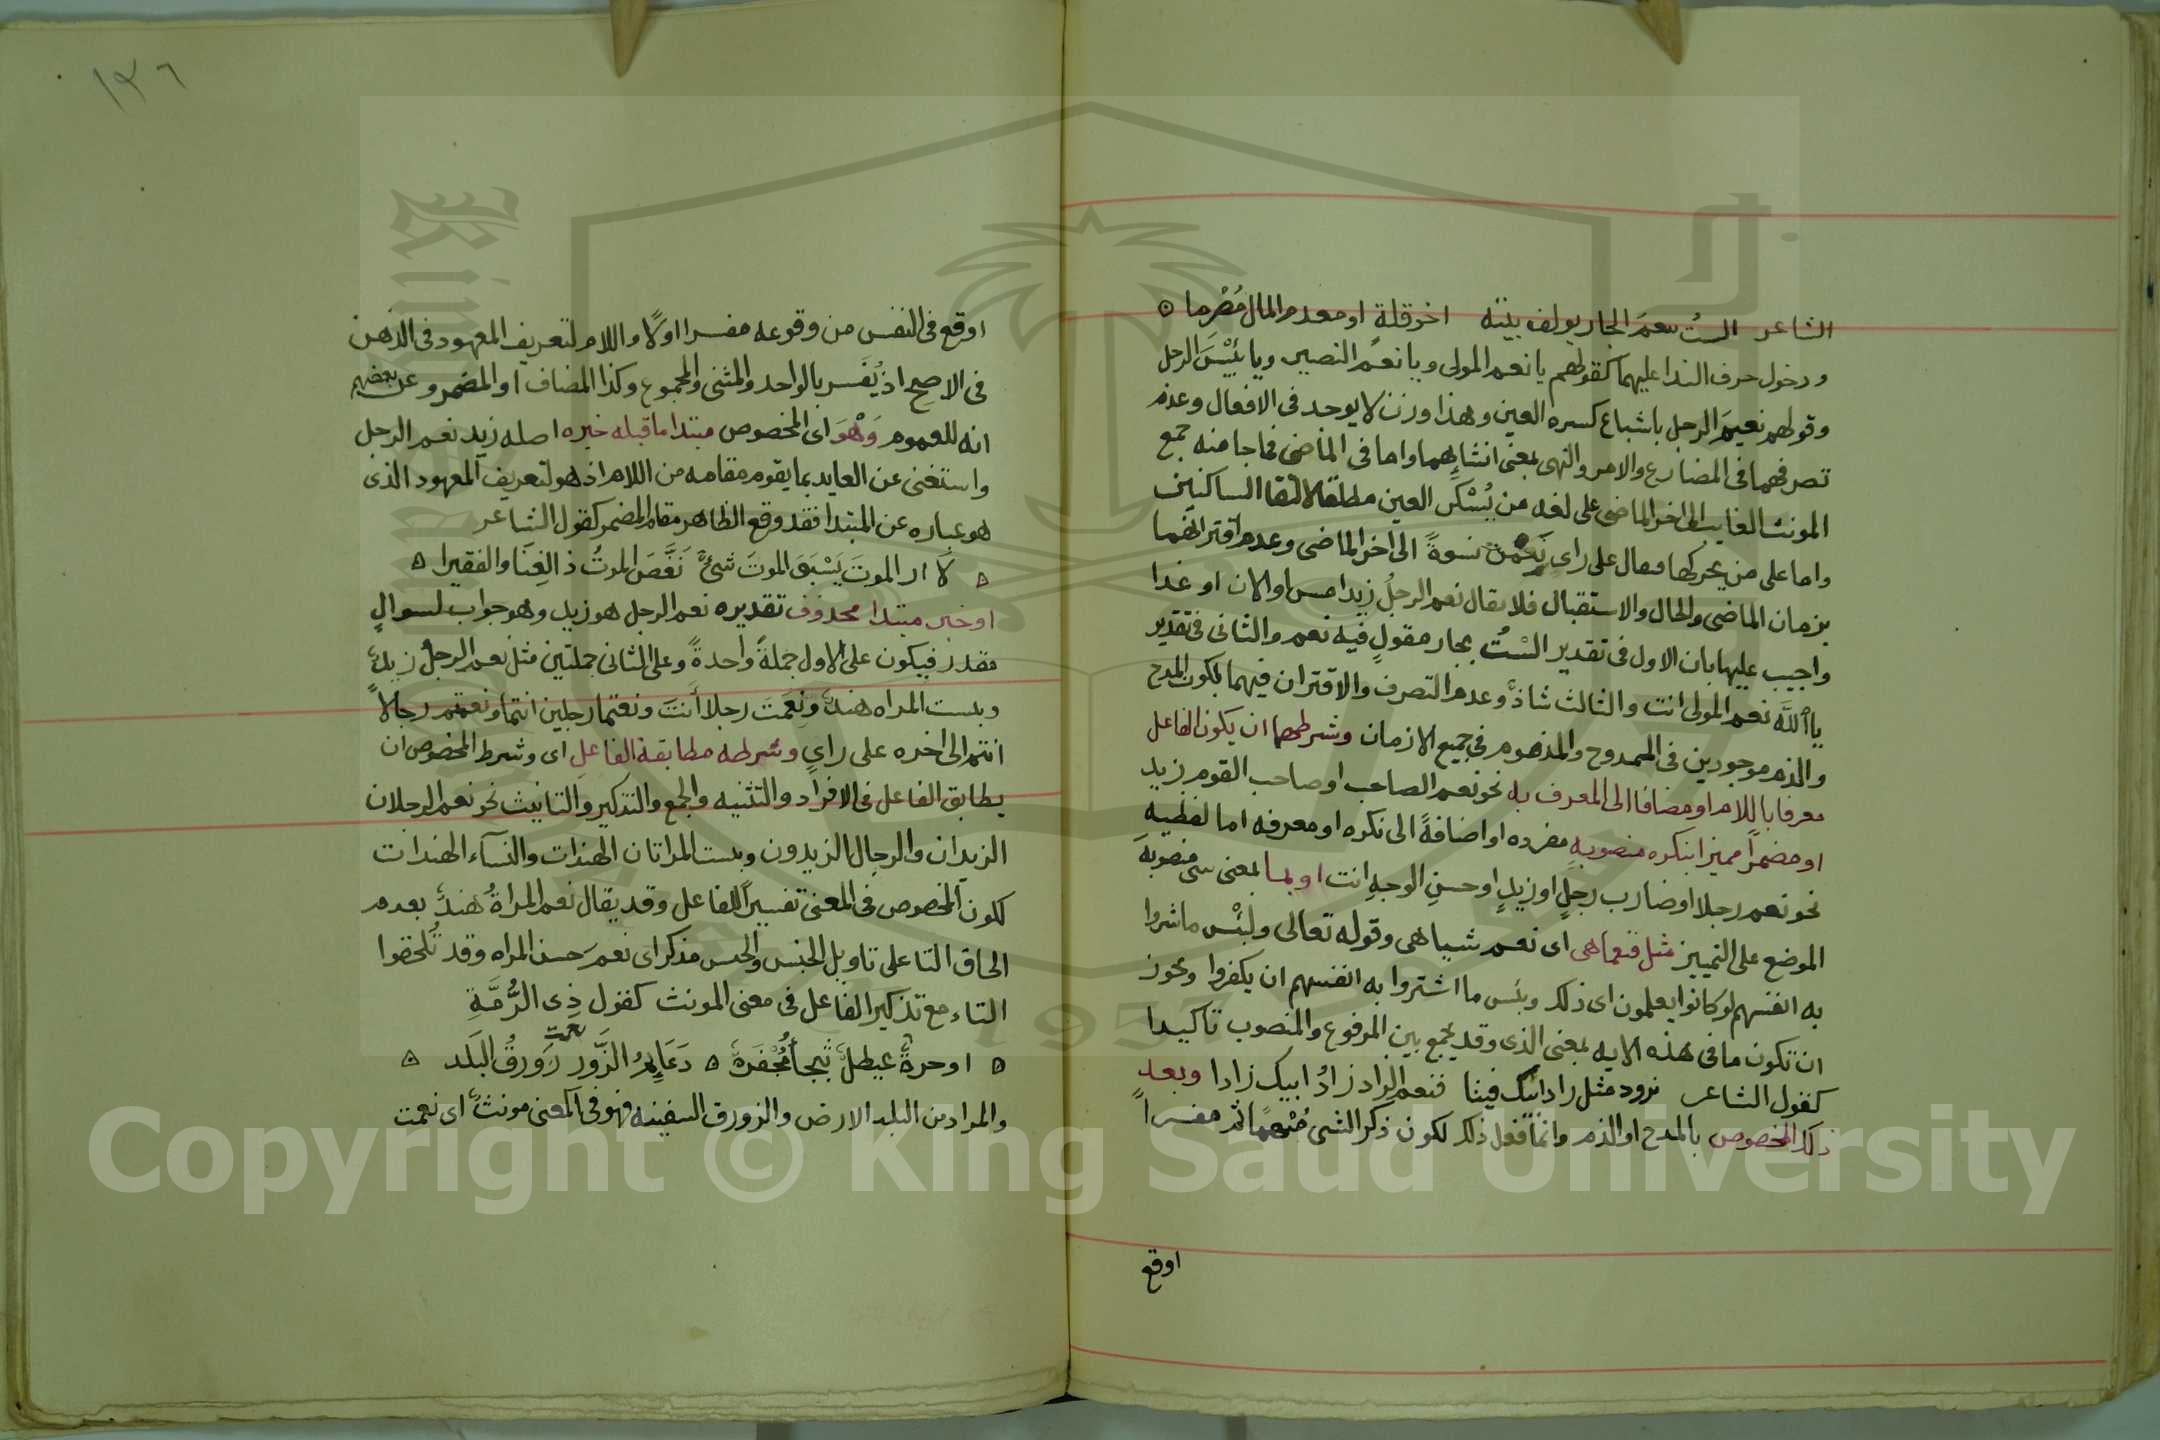 الشاعر الستُ بنعمَ الجار يولف بيته اخو قلة او معدم المال مُصْرِما ⊙
ودخول حرف الندا عليهما كقولهم يا نعم المولى ويا نعم النصير ويا بئسَ الرجل
وقولهم نعيمَ الرجل باشباع كسره العين وهذا وزن لا يوجد فى الافعال وعدم
تصرفهما فى المضارع والامر والنهى بمعنى انشايهما واما فى الماضى فما جا منه جمع
المونث الغايب الى اخر الماضى على لغه من يُسْكِن العين مطلقا لالتقا الساكنين
واما على من يحركها فيقال على راىٍ نَعِمْنَ نسوةً الى اخر الماضى وعدم اقترانهما
بزمان الماضى والحال والاستقبال فلا يقال نعم الرجلُ زيد امس او الان او غدا
واجيب عليها بان الاول فى تقدير السْتُ بجار مقولٍ فيه نعم والثانى فى تقدير
يا اللَّه نعم المولى انت والثالث شاذ وعدم التصرف والاقتران فيهما لكون المدح
والذم موجودين فى الممدوح والمذموم فى جميع الازمان وشرطهما ان يكون الفاعل
معرفا باللام او مضافا الى المعرف به نحو نعم الصاحب او صاحب القوم زيد
او مضمراً مميزا بنكره منصوبهٍ مفرده او اضافةً الى نكره او معرفه اما لفظيه
نحو نعم رجلا او ضارب رجلٍ او زيدٍ او حسن الوجهِ انت او بما بمعنى شى منصوبة
الموضع على التمييز مثل فنعما هى اى نعم شيا هى وقوله تعالى ولبئْس ما شروا
به انفسهم لو كانوا يعلمون اى ذلك وبئس ما اشتروا به انفسهم ان يكفروا ويجوز
ان تكون ما فى هذه الايه بمعنى الذى وقد يجمع بين المرفوع والمنصوب تاكيدا
كقول الشاعر تزود مثل زاد ابيك فينا فنعم الزاد زادُ ابيك زادا وبعد
ذلك المخصوص بالمدح او الذم وانما فعل ذلك لكون ذكر الشى مُبْهماً ثم مفسراً
اوقع
١٣٦
اوقع فى النفس من وقوعه مفسرا اولًا واللام لتعريف المعهود فى الذهن
فى الاصح اذ يُفَسر بالواحد والمثنى والمجموع وكذا المضاف او المضمر وعن بعضهم
انه للعموم وَهْوَ اى المخصوص مبتدا ما قبله خبره اصله زيد نعم الرجل
واستغنى عن العايد بما يقوم مقامه من اللام اذ هو لتعريف المعهود الذى
هو عباره عن المبتدا فقد وقع الظاهر مقام المضمر كقول الشاعر
لا ار الموتَ يَسْبَق الموتَ شىٌ نَغَّصَ الموتُ ذا الغِنَا والفقيرا
او خبر مبتدا محذوف تقديره نعم الرجل هو زيد وهو جواب لسوالٍ
مقدر فيكون على الاول جملةً واحدةً وعلى الثانى جملتين مثل نعم الرجلُ زيدٌ
وبئست المراه هندٌ ونِعْمَتَ رجلا أنتَ ونعتما رجلين انتما ونعمتم رجالاً
انتم الى اخره على راىٍ وشرطه مطابقة الفاعلِ اى وشرط المخصوص ان
يطابق الفاعل فى الافراد والتثنيه والجمع والتذكير والتانيث نحو نعم الرجلان
الزيدان والرجال الزيدون وبئست المراتان الهندات والنسآء الهندات
لكون المخصوص فى المعنى تفسيراً للفاعل وقد يقال نعم المراةُ هندٌ بعدم
الحاق التا على تاويل الجنس والجنس مذكر اى نعم جنس المراه وقد تُلحقوا
التاء مع تذكير الفاعل فى معنى المونث كقول ذِى الرُّمَّةِ
او حرةٌ عيطلٌ ثَبجاُ مُجْفَرةٌ دَعَايِمُ الزَّور نعمت زَورقُ البَلَد
والمراد من البلد الارض والزورق السفينه فهو فى المعنى مونثٌ اى نعمت
Copyright © King Saud University
1957